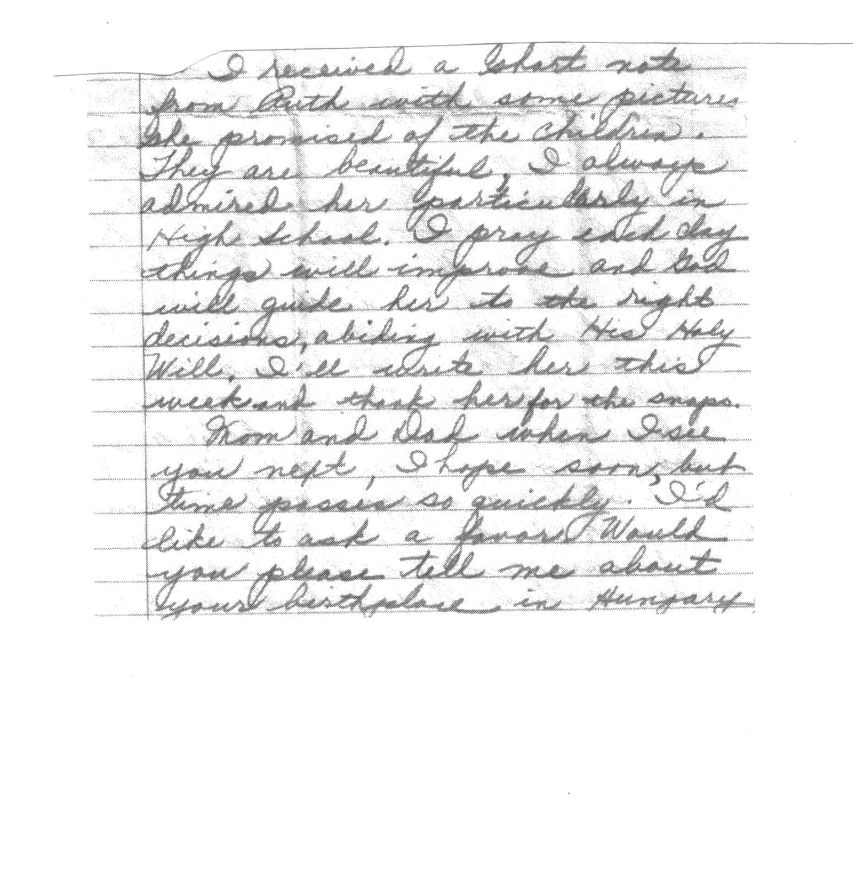 I received a short note
from Ruth with some pictures
she promised of the children.
They are beautiful, I always
admired her particularly in
High School. I pray each day
things will improve and God
will guide her to the right
decisions, abiding with His Holy
Will. I'll write her this
week and thank her for the snaps.
Mom and Dad when I see
you next, I hope soon, but
time passes so quickly. I'd
like to ask a favor. Would
you please tell me about
your birthplace in Hungary